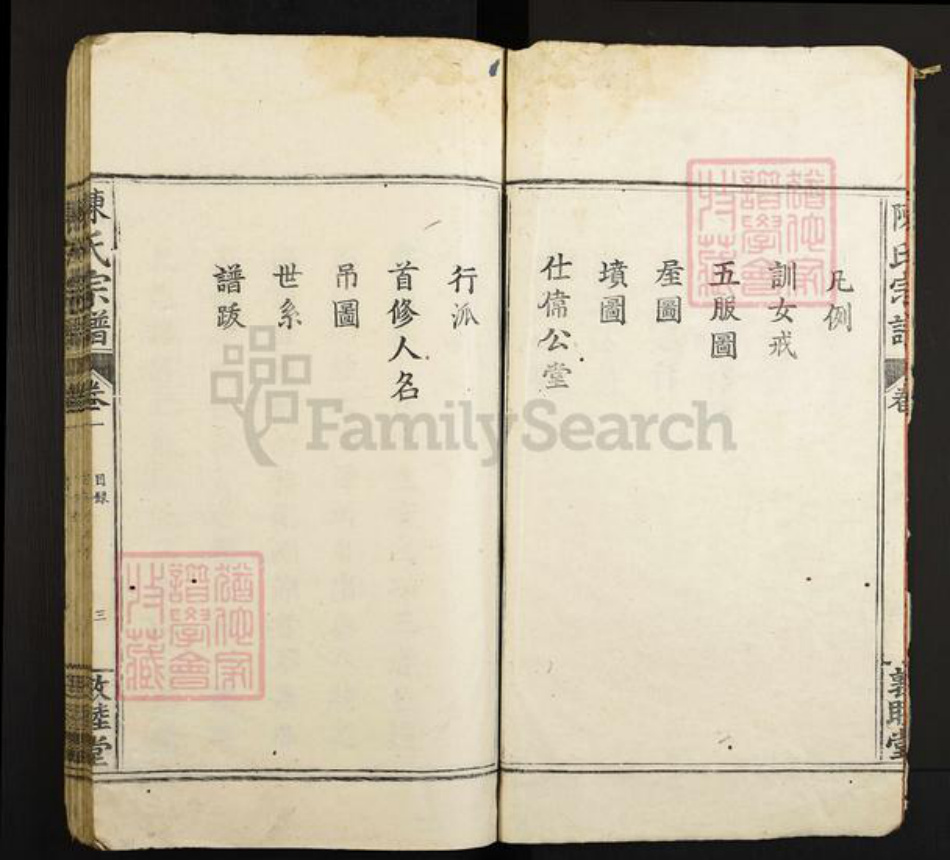 凡例
訓女戒
五服圖
屋圖
墳圖
仕偉公堂
行派
首修人名
吊圖
世系
譜跋
陳氏宗譜
卷一
目錄
三
敦睦堂
猶他家譜學會收藏
猶他家譜學會收藏
FamilySearch